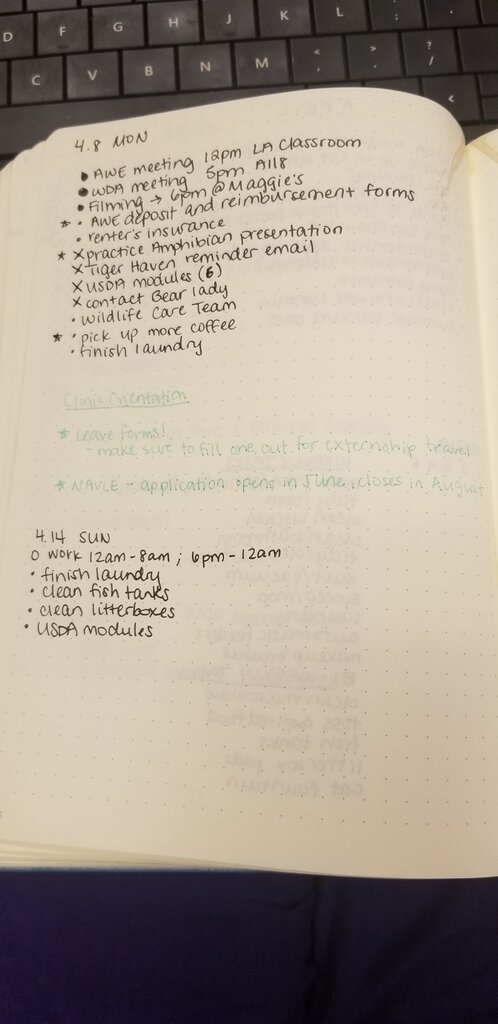 D F G H J K L
C V B N M < , > . ? /
<
4.8 MON
• AWE meeting 12pm LA Classroom
• WDA meeting 5pm A118
• Filming → 6pm @ Maggie's
* • AWE deposit and reimbursement forms
• renter's insurance
* X practice Amphibian presentation
X Tiger Haven reminder email
X USDA modules (6)
X contact Bear lady
• Wildlife Care Team
* • pick up more coffee
• finish laundry
Clinic Orientation
* Leave forms!
- make sure to fill one out for externship travel
* NAVLE - application opens in June, closes in August
4.14 SUN
O work 12am-8am ; 6pm-12am
• finish laundry
• clean fish tanks
• clean litterboxes
• USDA modules